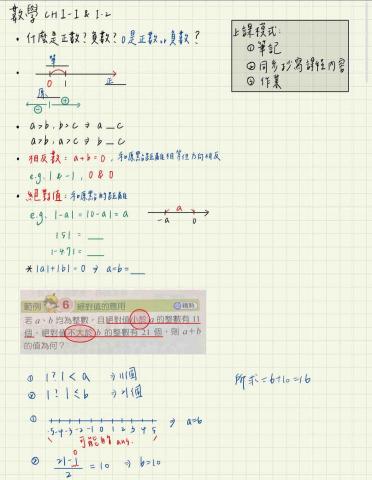 數學 CH 1-1 & 1-2
上課模式:
① 筆記
② 同步抄寫課程內容
③ 作業
• 什麼是正數? 負數? 0是正數or負數?
0 1 正
⊖ ⊕
• a>b, b>c ⇒ a __ c
a>b, a>c ⇒ b __ c
• 相反數: a+b=0, 和原點距離相等但方向相反
e.g. 1 & -1, 0 & 0
• 絕對值: 和原點的距離
e.g. |-a| = |0-a| = a
-a a 0
|5| = __
|-47| = __
* |a|+|b|=0 ⇒ a=b= __
範例 6 絕對值的應用
若 a、b 均為整數,且絕對值小於 a 的整數有 11
個,絕對值不大於 b 的整數有 21 個,則 a+b
的值為何?
① |?| < a ⇒ 11個
② |?| ≤ b ⇒ 21個
所求=6+10=16
①
-5 -4 -3 -2 -1 0 1 2 3 4 5 ⇒ a=6
可能的 ans.
② 21-1/2 = 10 ⇒ b=10